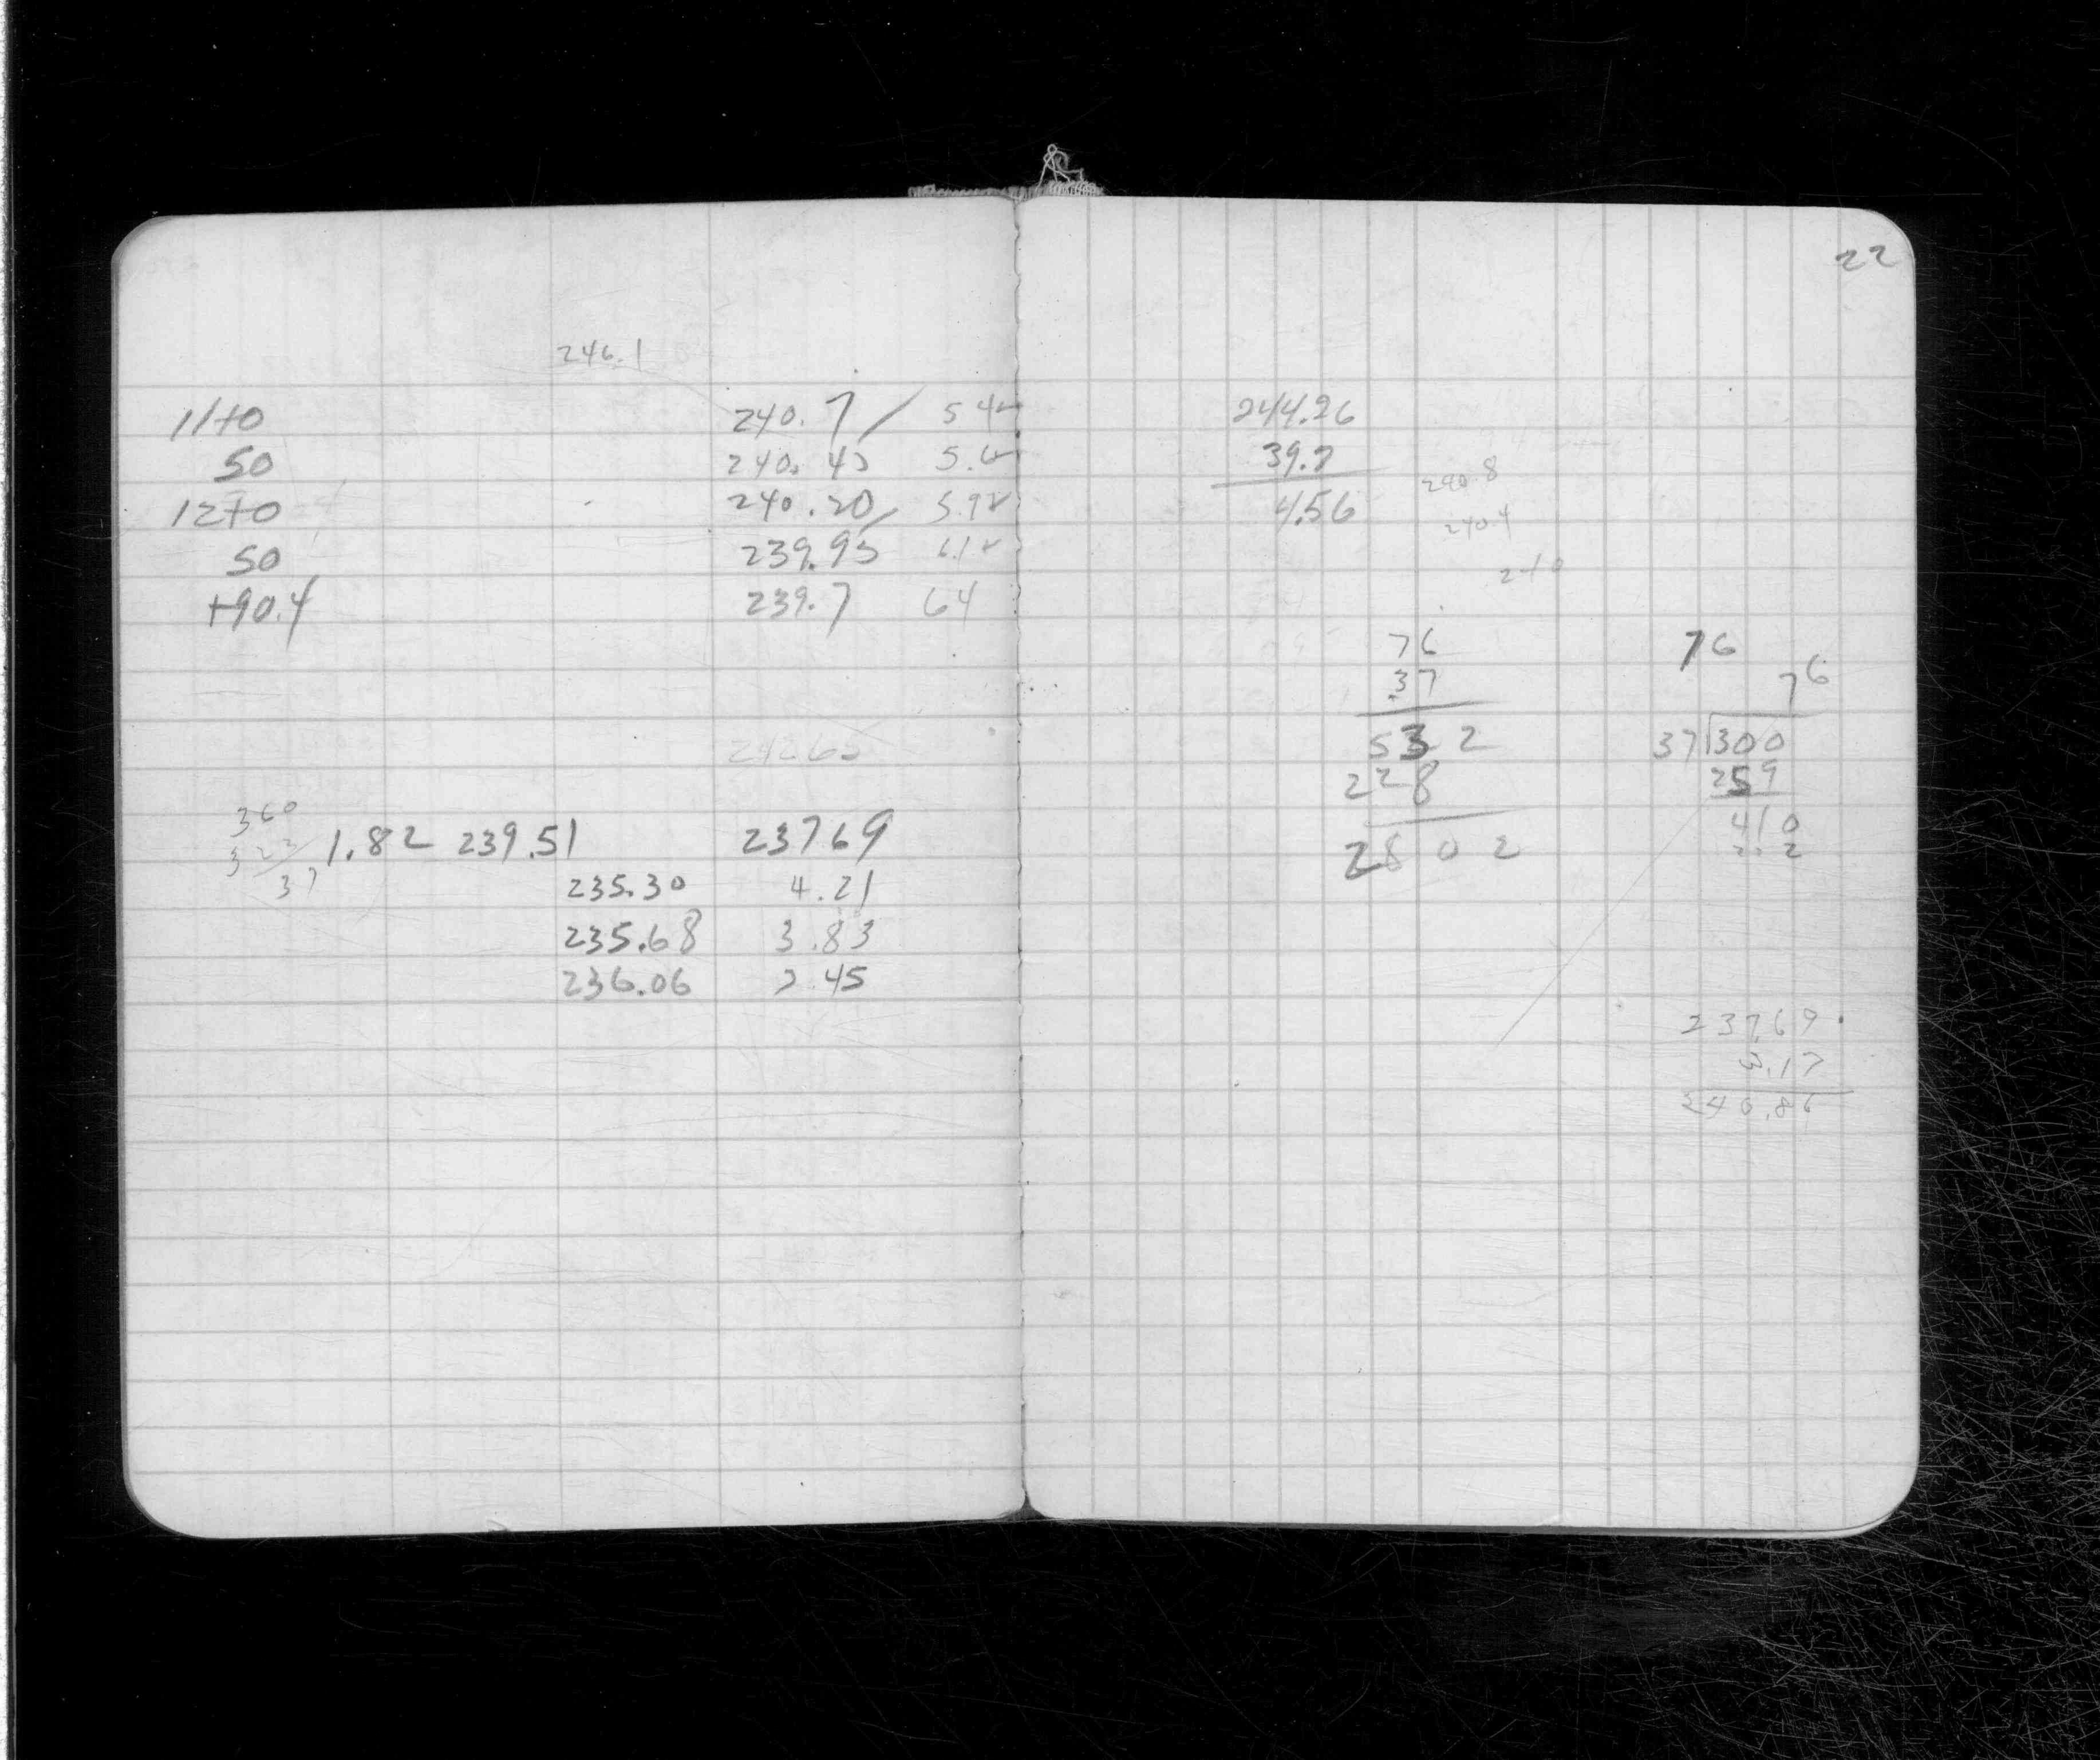 246.1
11+0 240.7 / 5.4
50 240.45 5.6
12+0 240.20 5.9
50 239.95 6.1
+90.4 239.7 64
24265
360
323
37
1.82 239.51 23769
235.30 4.21
235.68 3.83
236.06 3.45
22
244.26
39.7
4.56
240.8
240.4
240
76
.37
532
228
2802
76
76
37 300
259
410
23769
3.17
240.86